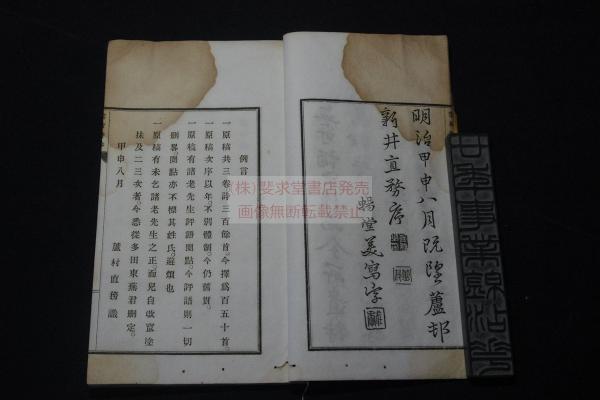 明治甲申八月既望蘆邨
新井直務序
蝸堂美寫字
例言
一原稿共三卷詩三百餘首。今擇為百五十首。
一原稿次序以年不別體制。今仍舊貫。
一原稿有諸老先生評語圈點。今評語則一切
刪畧圈點亦不標其姓氏。避煩也
一原稿有未乞諸老先生之正。而兄自改竄塗
抹及二三次者。今悉從多田東蕪君刪定。
甲申八月
蘆村直務識
(株)斐求堂書店発売
画像無断転載禁止